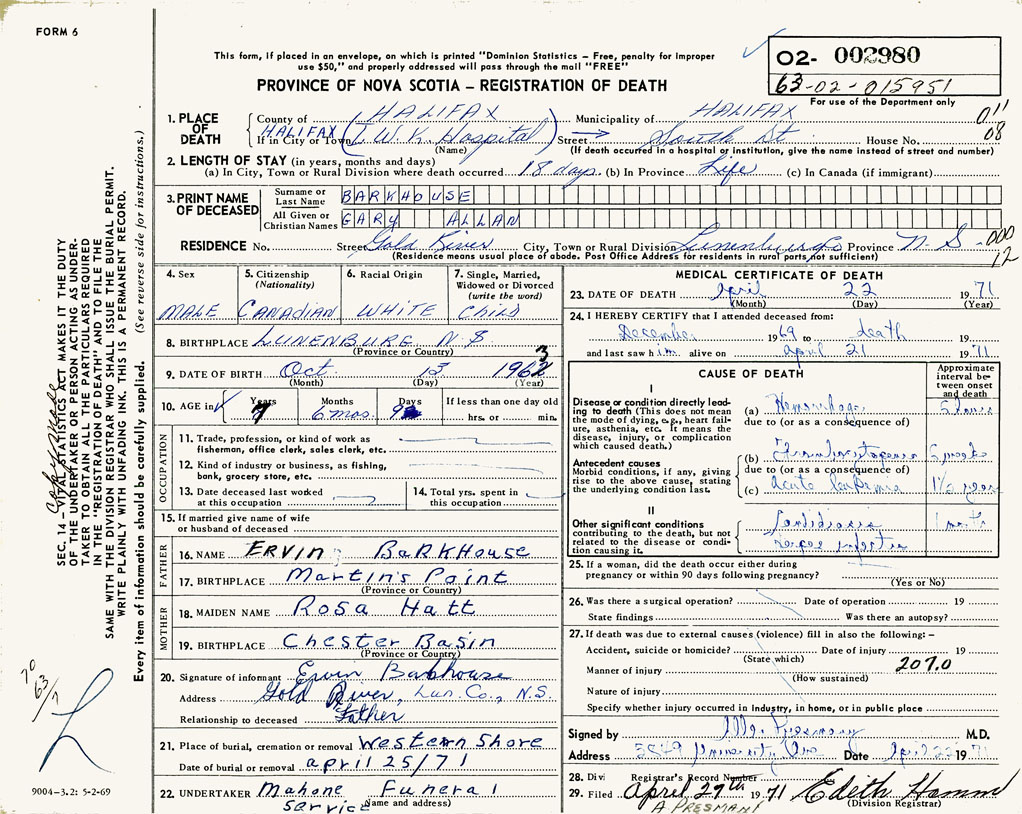 FORM 6
This form, if placed in an envelope, on which is printed "Dominion Statistics - Free, penalty for improper
use $50," and properly addressed will pass through the mail "FREE"
PROVINCE OF NOVA SCOTIA - REGISTRATION OF DEATH
02- 002980
63-02-015951
For use of the Department only
1. PLACE OF DEATH
County of HALIFAX Municipality of HALIFAX 011
If in City or Town HALIFAX (I.W.K. Hospital) Street → South St House No. 08
(Name) (If death occurred in a hospital or institution, give the name instead of street and number)
2. LENGTH OF STAY (in years, months and days)
(a) In City, Town or Rural Division where death occurred 18 days (b) In Province Life (c) In Canada (if immigrant)
3. PRINT NAME OF DECEASED
Surname or Last Name BARKHOUSE
All Given or Christian Names GARY ALLAN
RESIDENCE No. Street Gold River City, Town or Rural Division Lunenburg Co Province N S -000
(Residence means usual place of abode. Post Office Address for residents in rural parts not sufficient) 12
4. Sex MALE
5. Citizenship (Nationality) CANADIAN
6. Racial Origin WHITE
7. Single, Married, Widowed or Divorced (write the word) CHILD
8. BIRTHPLACE LUNENBURG N S
(Province or Country)
9. DATE OF BIRTH Oct 13 1963
(Month) (Day) (Year)
10. AGE in Years 7 Months 6 mos. Days 9 If less than one day old
hrs. or min.
OCCUPATION
11. Trade, profession, or kind of work as
fisherman, office clerk, sales clerk, etc.
12. Kind of industry or business, as fishing,
bank, grocery store, etc.
13. Date deceased last worked
at this occupation
14. Total yrs. spent in
this occupation
15. If married give name of wife
or husband of deceased
FATHER
16. NAME ERVIN BARKHOUSE
17. BIRTHPLACE Martin's Point
(Province or Country)
MOTHER
18. MAIDEN NAME Rosa Hatt
19. BIRTHPLACE Chester Basin
(Province or Country)
20. Signature of informant Ervin Barkhouse
Address Gold River, Lun. Co., N.S.
Relationship to deceased Father
21. Place of burial, cremation or removal Western Shore
Date of burial or removal april 25/71
22. UNDERTAKER Mahone Funeral
Service (Name and address)
MEDICAL CERTIFICATE OF DEATH
23. DATE OF DEATH April 22 1971
(Month) (Day) (Year)
24. I HEREBY CERTIFY that I attended deceased from:
December 1969 to death
and last saw him alive on april 21 1971
CAUSE OF DEATH
Approximate interval between onset and death
I
Disease or condition directly leading to death (This does not mean the mode of dying, e.g., heart failure, asthenia, etc. It means the disease, injury, or complication which caused death.)
(a) Hemorrhage
due to (or as a consequence of)
Antecedent causes
Morbid conditions, if any, giving rise to the above cause, stating the underlying condition last.
(b) Thrombocytopenia
due to (or as a consequence of)
(c) Acute leukemia 1½ years
II
Other significant conditions contributing to the death, but not related to the disease or condition causing it.
Candidiasis 1 month
Herpes infection
25. If a woman, did the death occur either during
pregnancy or within 90 days following pregnancy?
(Yes or No)
26. Was there a surgical operation? Date of operation 19
State findings Was there an autopsy?
27. If death was due to external causes (violence) fill in also the following:-
Accident, suicide or homicide? Date of injury 19
(State which)
Manner of injury 207.0
(How sustained)
Nature of injury
Specify whether injury occurred in industry, in home, or in public place
Signed by M.D.
Address 5849 University Ave Date April 22 1971
28. Div Registrar's Record Number
29. Filed April 27th 1971 Edith
A. PRESMANY (Division Registrar)
SEC. 14 - VITAL STATISTICS ACT MAKES IT THE DUTY
OF THE UNDERTAKER OR PERSON ACTING AS UNDER-
TAKER TO OBTAIN ALL THE PARTICULARS REQUIRED
IN THE "REGISTRATION OF DEATH" AND TO FILE THE
SAME WITH THE DIVISION REGISTRAR WHO SHALL ISSUE THE BURIAL PERMIT.
WRITE PLAINLY WITH UNFADING INK. THIS IS A PERMANENT RECORD.
Every item of information should be carefully supplied. (See reverse side for instructions.)
70
63/7
9004-3.2: 5-2-69